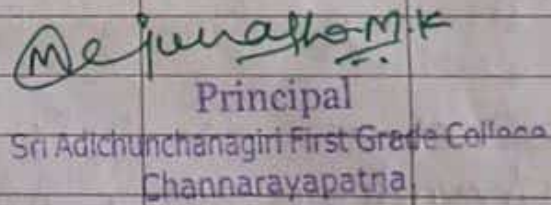 Manjunatha M.K
Principal
Sri Adichunchanagiri First Grade College
Channarayapatna